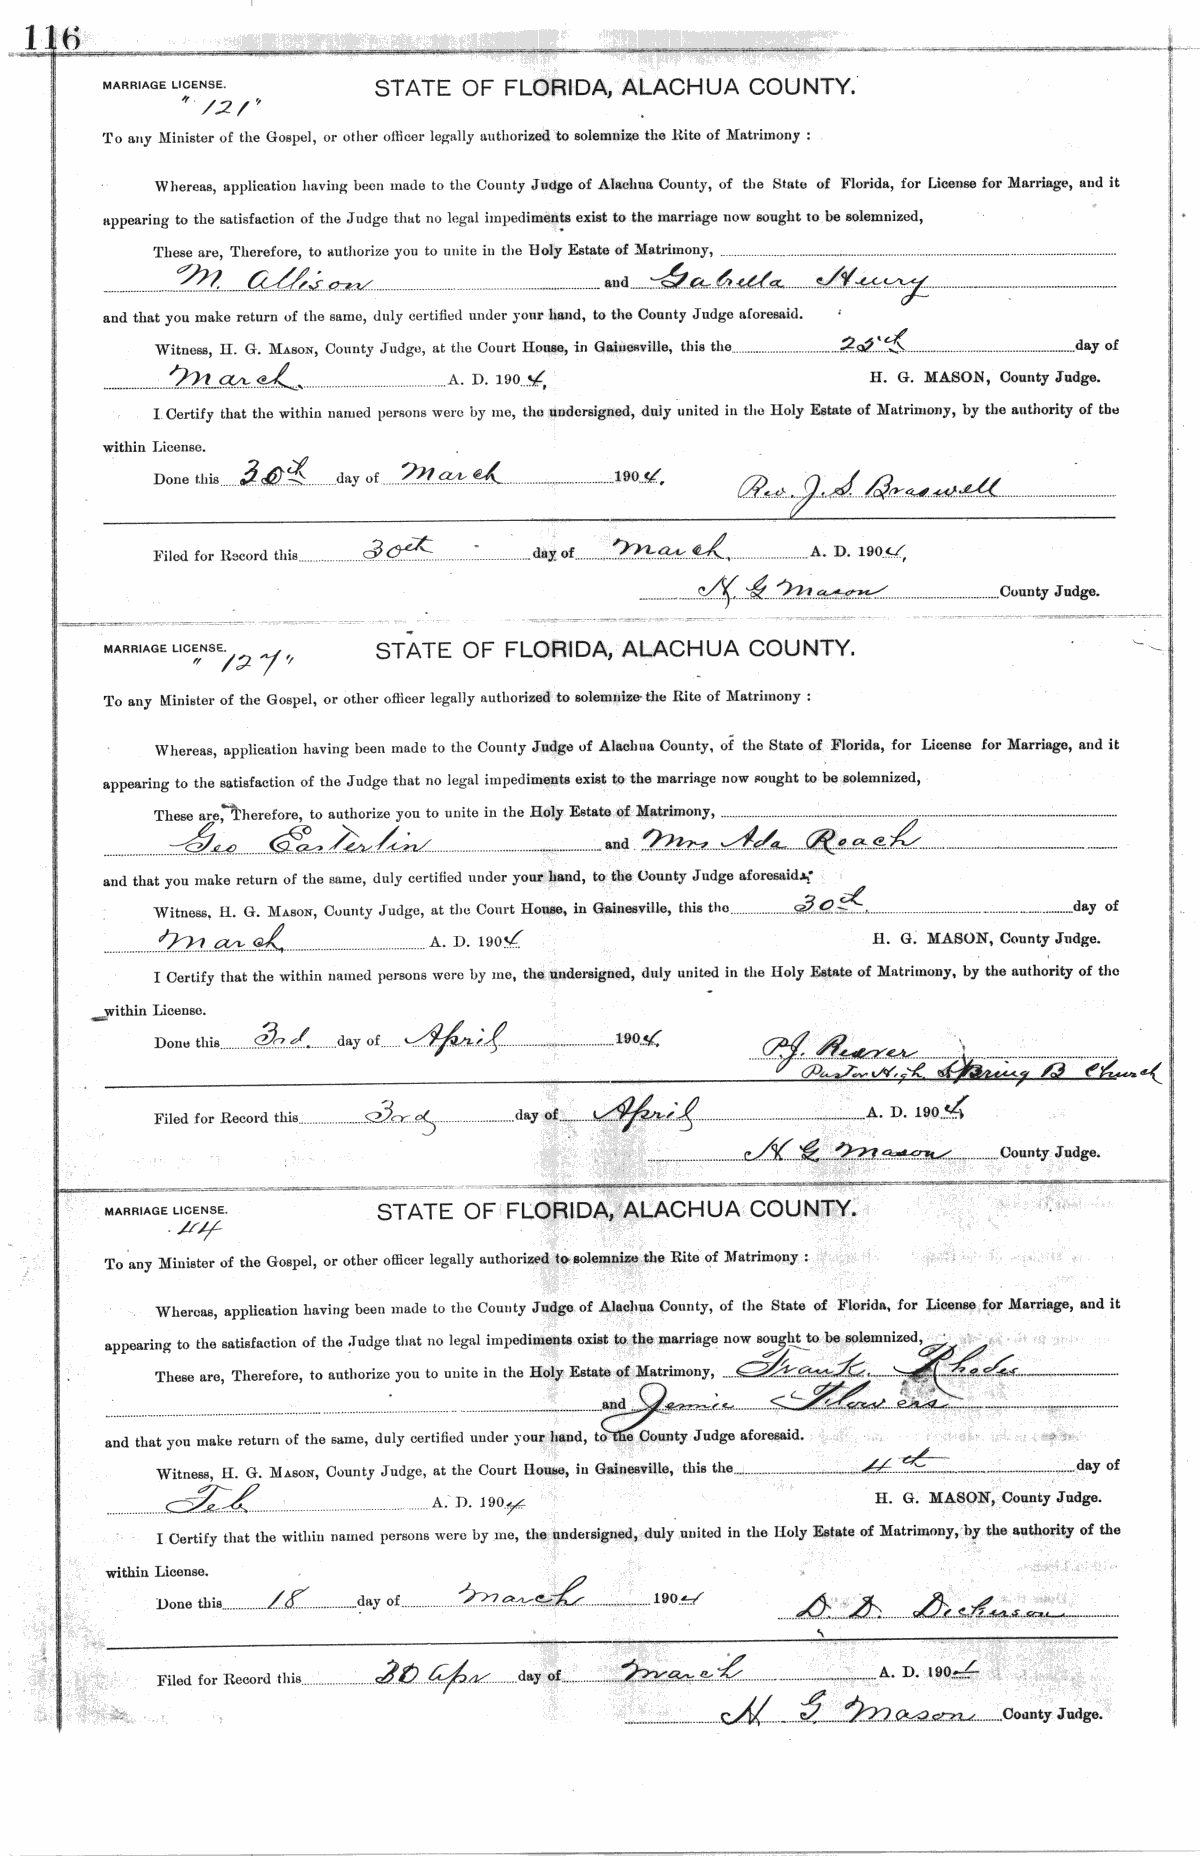 116
MARRIAGE LICENSE. STATE OF FLORIDA, ALACHUA COUNTY.
"121"
To any Minister of the Gospel, or other officer legally authorized to solemnize the Rite of Matrimony :
Whereas, application having been made to the County Judge of Alachua County, of the State of Florida, for License for Marriage, and it
appearing to the satisfaction of the Judge that no legal impediments exist to the marriage now sought to be solemnized,
These are, Therefore, to authorize you to unite in the Holy Estate of Matrimony,
M. Allison and Gabrella Henry
and that you make return of the same, duly certified under your hand, to the County Judge aforesaid.
Witness, H. G. MASON, County Judge, at the Court House, in Gainesville, this the 25th day of
March. A. D. 1904, H. G. MASON, County Judge.
I Certify that the within named persons were by me, the undersigned, duly united in the Holy Estate of Matrimony, by the authority of the
within License.
Done this 30th day of March 1904. Rev. J. S. Braswell
Filed for Record this 30th day of March. A. D. 1904,
H G Mason County Judge.
MARRIAGE LICENSE. STATE OF FLORIDA, ALACHUA COUNTY.
"127"
To any Minister of the Gospel, or other officer legally authorized to solemnize the Rite of Matrimony :
Whereas, application having been made to the County Judge of Alachua County, of the State of Florida, for License for Marriage, and it
appearing to the satisfaction of the Judge that no legal impediments exist to the marriage now sought to be solemnized,
These are, Therefore, to authorize you to unite in the Holy Estate of Matrimony,
Geo Easterlin and Mrs Ada Roach
and that you make return of the same, duly certified under your hand, to the County Judge aforesaid.
Witness, H. G. MASON, County Judge, at the Court House, in Gainesville, this the 30th. day of
March, A. D. 1904 H. G. MASON, County Judge.
I Certify that the within named persons were by me, the undersigned, duly united in the Holy Estate of Matrimony, by the authority of the
within License.
Done this 3rd. day of April 1904. P.J.
Pastor High Spring B Church
Filed for Record this 3rd day of April A. D. 1904,
H G Mason County Judge.
MARRIAGE LICENSE. STATE OF FLORIDA, ALACHUA COUNTY.
44
To any Minister of the Gospel, or other officer legally authorized to solemnize the Rite of Matrimony :
Whereas, application having been made to the County Judge of Alachua County, of the State of Florida, for License for Marriage, and it
appearing to the satisfaction of the Judge that no legal impediments exist to the marriage now sought to be solemnized,
These are, Therefore, to authorize you to unite in the Holy Estate of Matrimony, Frank. Rhodes
and Jennie Flowers
and that you make return of the same, duly certified under your hand, to the County Judge aforesaid.
Witness, H. G. MASON, County Judge, at the Court House, in Gainesville, this the 4th day of
Feb A. D. 1904 H. G. MASON, County Judge.
I Certify that the within named persons were by me, the undersigned, duly united in the Holy Estate of Matrimony, by the authority of the
within License.
Done this 18 day of March 1904 D. D. Dickerson
Filed for Record this 30 Apr day of March A. D. 1904
H G Mason County Judge.